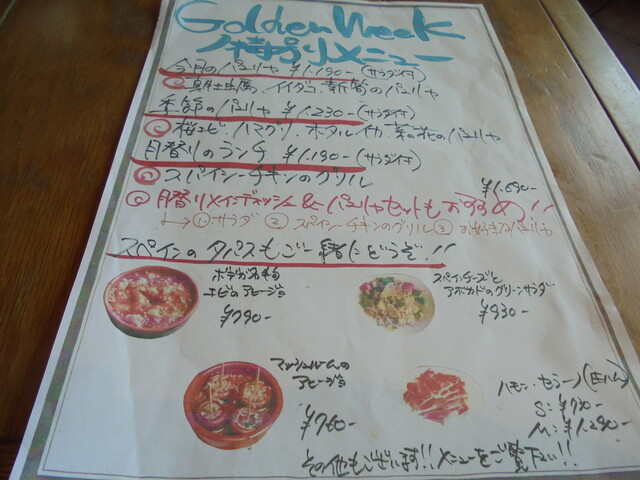 Golden Week
特別メニュー
今月のパエリヤ ¥1,190-(サラダ付)
イイダコ、新筍のパエリヤ
季節のパエリヤ ¥1,230-(サラダ付)
桜エビ・ハマグリ・ホタルイカ、菜の花のパエリヤ
月替りのランチ ¥1,190-(サラダ付)
スパイシーチキンのグリル
¥1,690-
月替りメインディッシュ&パエリヤセットもおすすめ!!
→①サラダ ② スパイシーチキンのグリル ③ お好きなパエリヤ
スペインのタパスもご一緒にどうぞ!!
ボデガ名物
エビのアヒージョ
¥790-
スペインチーズと
アボカドのグリーンサラダ
¥930-
マッシュルームの
アヒージョ
¥760-
ハモン・セラーノ(生ハム)
S:¥730-
M:¥1,290-
その他もございます!!メニューをご覧下さい!!